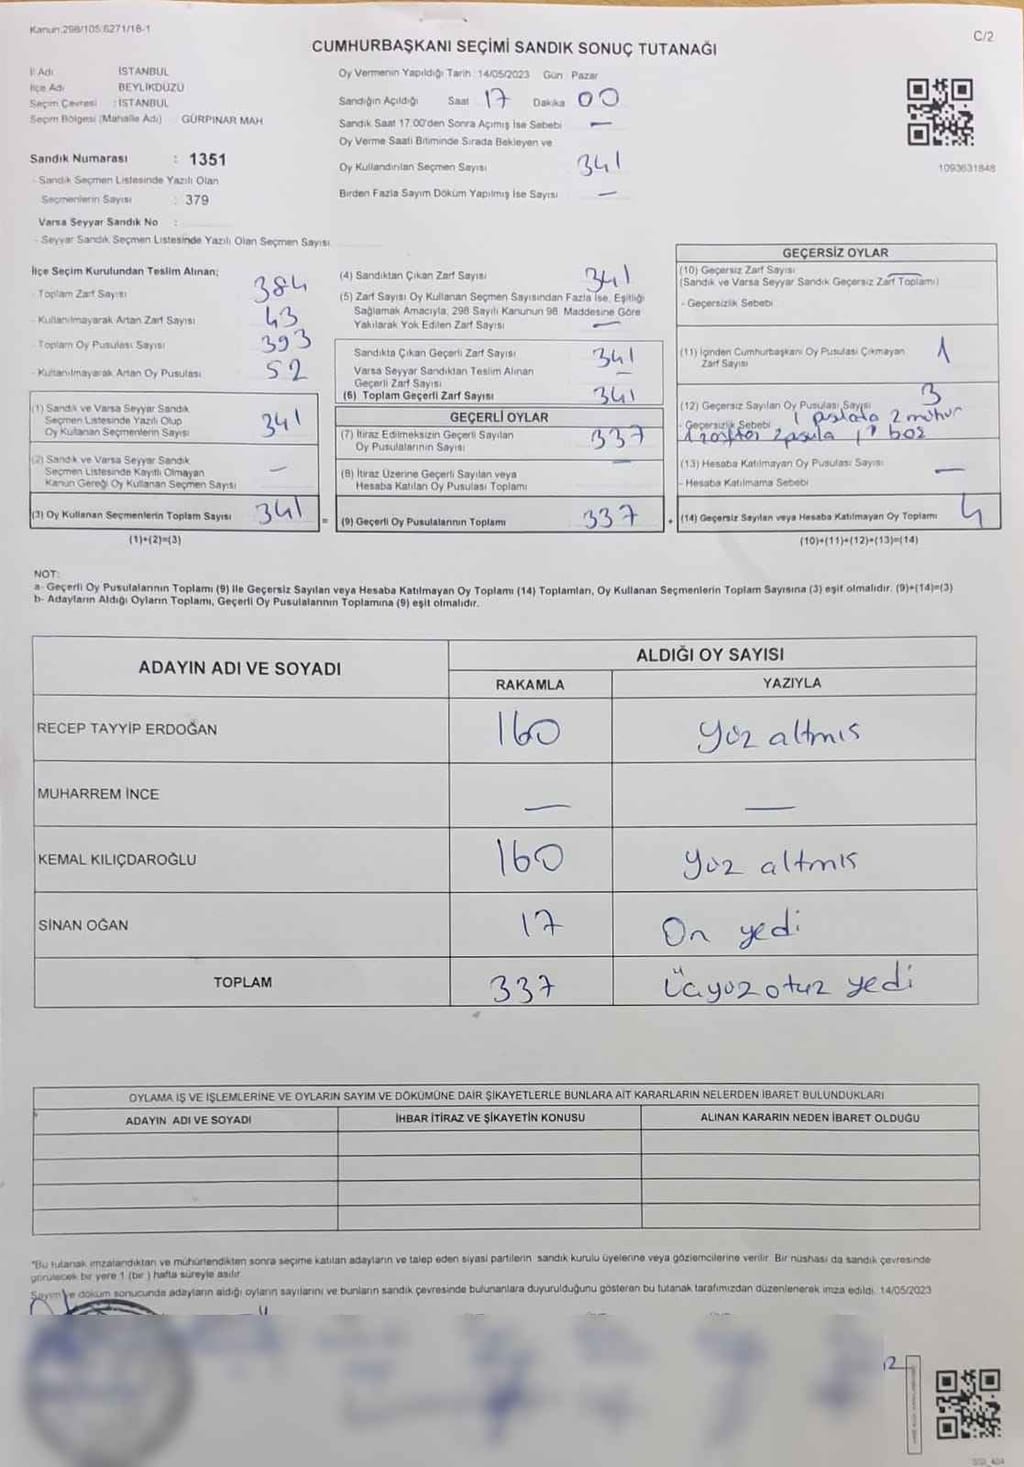 Kanun:298/105:6271/18-1
C/2
CUMHURBAŞKANI SEÇİMİ SANDIK SONUÇ TUTANAĞI
İl Adı İSTANBUL
İlçe Adı BEYLİKDÜZÜ
Seçim Çevresi : İSTANBUL
Seçim Bölgesi (Mahalle Adı) GÜRPINAR MAH
Sandık Numarası : 1351
- Sandık Seçmen Listesinde Yazılı Olan
Seçmenlerin Sayısı : 379
Varsa Seyyar Sandık No :
- Seyyar Sandık Seçmen Listesinde Yazılı Olan Seçmen Sayısı
Oy Vermenin Yapıldığı Tarih : 14/05/2023 Gün : Pazar
Sandığın Açıldığı Saat 17 Dakika 00
Sandık Saat 17.00'den Sonra Açımış İse Sebebi —
Oy Verme Saati Bitiminde Sırada Bekleyen ve
Oy Kullandırılan Seçmen Sayısı 341
Birden Fazla Sayım Döküm Yapılmış İse Sayısı —
1093631848
İlçe Seçim Kurulundan Teslim Alınan;
- Toplam Zarf Sayısı 384
- Kullanılmayarak Artan Zarf Sayısı 43
- Toplam Oy Pusulası Sayısı 393
- Kullanılmayarak Artan Oy Pusulası 52
(1) Sandık ve Varsa Seyyar Sandık
Seçmen Listesinde Yazılı Olup
Oy Kullanan Seçmenlerin Sayısı 341
(2) Sandık ve Varsa Seyyar Sandık
Seçmen Listesinde Kayıtlı Olmayan
Kanun Gereği Oy Kullanan Seçmen Sayısı —
(3) Oy Kullanan Seçmenlerin Toplam Sayısı 341
(1)+(2)=(3)
(4) Sandıktan Çıkan Zarf Sayısı 341
(5) Zarf Sayısı Oy Kullanan Seçmen Sayısından Fazla İse, Eşitliği
Sağlamak Amacıyla, 298 Sayılı Kanunun 98. Maddesine Göre
Yakılarak Yok Edilen Zarf Sayısı —
Sandıkta Çıkan Geçerli Zarf Sayısı 341
Varsa Seyyar Sandıktan Teslim Alınan
Geçerli Zarf Sayısı —
(6) Toplam Geçerli Zarf Sayısı 341
GEÇERLİ OYLAR
(7) İtiraz Edilmeksizin Geçerli Sayılan
Oy Pusulalarının Sayısı 337
(8) İtiraz Üzerine Geçerli Sayılan veya
Hesaba Katılan Oy Pusulası Toplamı —
= (9) Geçerli Oy Pusulalarının Toplamı 337
GEÇERSİZ OYLAR
(10) Geçersiz Zarf Sayısı —
(Sandık ve Varsa Seyyar Sandık Geçersiz Zarf Toplamı)
- Geçersizlik Sebebi
(11) İçinden Cumhurbaşkanı Oy Pusulası Çıkmayan 1
Zarf Sayısı
(12) Geçersiz Sayılan Oy Pusulası Sayısı 3
- Geçersizlik Sebebi 1 2 mühür
2 pusula 1 boş
(13) Hesaba Katılmayan Oy Pusulası Sayısı —
- Hesaba Katılmama Sebebi
+ (14) Geçersiz Sayılan veya Hesaba Katılmayan Oy Toplamı 4
(10)+(11)+(12)+(13)=(14)
NOT:
a- Geçerli Oy Pusulalarının Toplamı (9) İle Geçersiz Sayılan veya Hesaba Katılmayan Oy Toplamı (14) Toplamları, Oy Kullanan Seçmenlerin Toplam Sayısına (3) eşit olmalıdır. (9)+(14)=(3)
b- Adayların Aldığı Oyların Toplamı, Geçerli Oy Pusulalarının Toplamına (9) eşit olmalıdır.
ADAYIN ADI VE SOYADI ALDIĞI OY SAYISI
RAKAMLA YAZIYLA
RECEP TAYYİP ERDOĞAN 160 Yüz altmıs
MUHARREM İNCE — —
KEMAL KILIÇDAROĞLU 160 Yüz altmıs
SİNAN OĞAN 17 On yedi
TOPLAM 337 Üçyüz otuz yedi
OYLAMA İŞ VE İŞLEMLERİNE VE OYLARIN SAYIM VE DÖKÜMÜNE DAİR ŞİKAYETLERLE BUNLARA AİT KARARLARIN NELERDEN İBARET BULUNDUKLARI
ADAYIN ADI VE SOYADI İHBAR İTİRAZ VE ŞİKAYETİN KONUSU ALINAN KARARIN NEDEN İBARET OLDUĞU
*Bu tutanak imzalandıktan ve mühürlendikten sonra seçime katılan adayların ve talep eden siyasi partilerin sandık kurulu üyelerine veya gözlemcilerine verilir. Bir nüshası da sandık çevresinde
görülecek bir yere 1 (bir) hafta süreyle asılır.
Sayım ve döküm sonucunda adayların aldığı oyların sayılarını ve bunların sandık çevresinde bulunanlara duyurulduğunu gösteren bu tutanak tarafımızdan düzenlenerek imza edildi. 14/05/2023